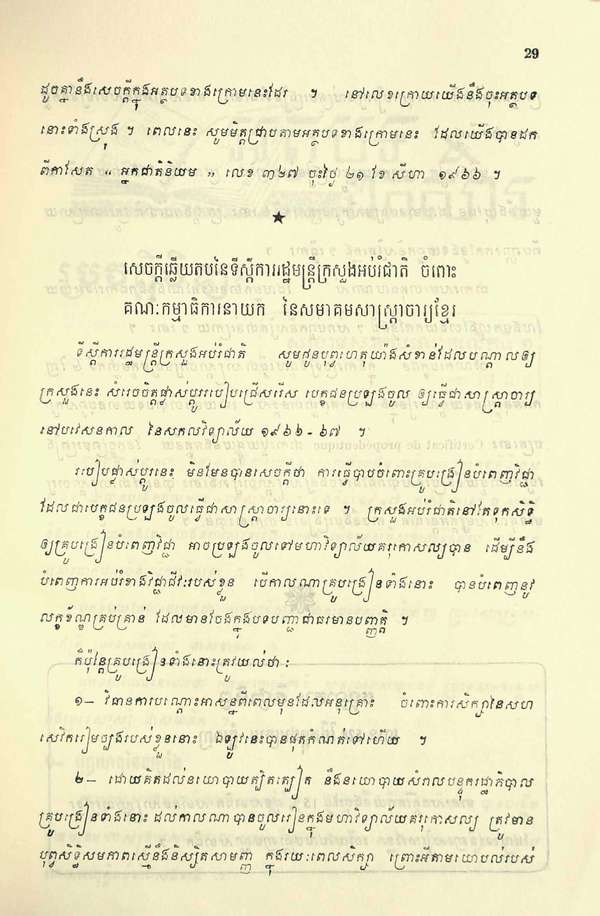 29
ដូចគ្នានឹងសេចក្ដីក្នុងអត្ថបទខាងក្រោមនេះដែរ ។ នៅលេខក្រោយយើងនឹងចុះអត្ថបទ
នោះទាំងស្រុង ។ ពេលនេះ សូមមិត្តជ្រាបតាមអត្ថបទខាងក្រោមនេះ ដែលយើងបានដក
ពីកាសែត “ អ្នកជាតិនិយម ” លេខ ៣២៧ ចុះថ្ងៃ ២១ ខែ សីហា ១៩៦៦ ។
★
សេចក្ដីឆ្លើយតបនៃទីស្ដីការរដ្ឋមន្ត្រីក្រសួងអប់រំជាតិ ចំពោះ
គណៈកម្មាធិការនាយក នៃសមាគមសាស្ត្រាចារ្យខ្មែរ
ទីស្ដីការរដ្ឋមន្ត្រីក្រសួងអប់រំជាតិ សូមជូនបុព្វហេតុយ៉ាងសំខាន់ដែលបណ្ដាលឲ្យ
ក្រសួងនេះ សំរេចចិត្តផ្លាស់ប្ដូររបៀបជ្រើសរើស បេក្ខជនប្រឡងចូល ឲ្យធ្វើជាសាស្ត្រាចារ្យ
នៅបវេសនកាល នៃសកលវិទ្យាល័យ ១៩៦៦-៦៧ ។
របៀបផ្លាស់ប្ដូរនេះ មិនមែនបានសេចក្ដីថា ការធ្វើបាបចំពោះគ្រូបង្រៀនបំពេញវិជ្ជា
ដែលជាបេក្ខជនប្រឡងចូលធ្វើជាសាស្ត្រាចារ្យនោះទេ ។ ក្រសួងអប់រំជាតិនៅតែទុកសិទ្ធិ
ឲ្យគ្រូបង្រៀនបំពេញវិជ្ជា អាចប្រឡងចូលទៅមហាវិទ្យាល័យគរុកោសល្យបាន ដើម្បីនឹង
បំពេញការអប់រំខាងវិជ្ជាជីវៈរបស់ខ្លួន បើកាលណាគ្រូបង្រៀនទាំងនោះ បានបំពេញនូវ
លក្ខខ័ណ្ឌគ្រប់គ្រាន់ ដែលមានចែងក្នុងបទបញ្ជាជាធរមានបញ្ញត្តិ ។
ក៏ប៉ុន្តែគ្រូបង្រៀនទាំងនោះត្រូវយល់ថា :
១— វិធានការបណ្ដោះអាសន្នពីពេលមុនដែលអនុគ្រោះ ចំពោះការសិក្សានៃសហ
សេវិករៀមច្បងរបស់ខ្លួននោះ ឯឡូវនេះបានផុតកំណត់ទៅហើយ ។
២— ដោយគិតដល់នយោបាយត្បិតត្បៀត នឹងនយោបាយសំរាលបន្ទុករដ្ឋាភិបាល
គ្រូបង្រៀនទាំងនោះ ដល់កាលណាបានចូលរៀនក្នុងមហាវិទ្យាល័យគរុកោសល្យ ត្រូវមាន
បុព្វសិទ្ធិសមភាពស្មើនឹងនិស្សិតសាមញ្ញ ក្នុងរយៈពេលសិក្សា ព្រោះអីតាមយោបល់របស់